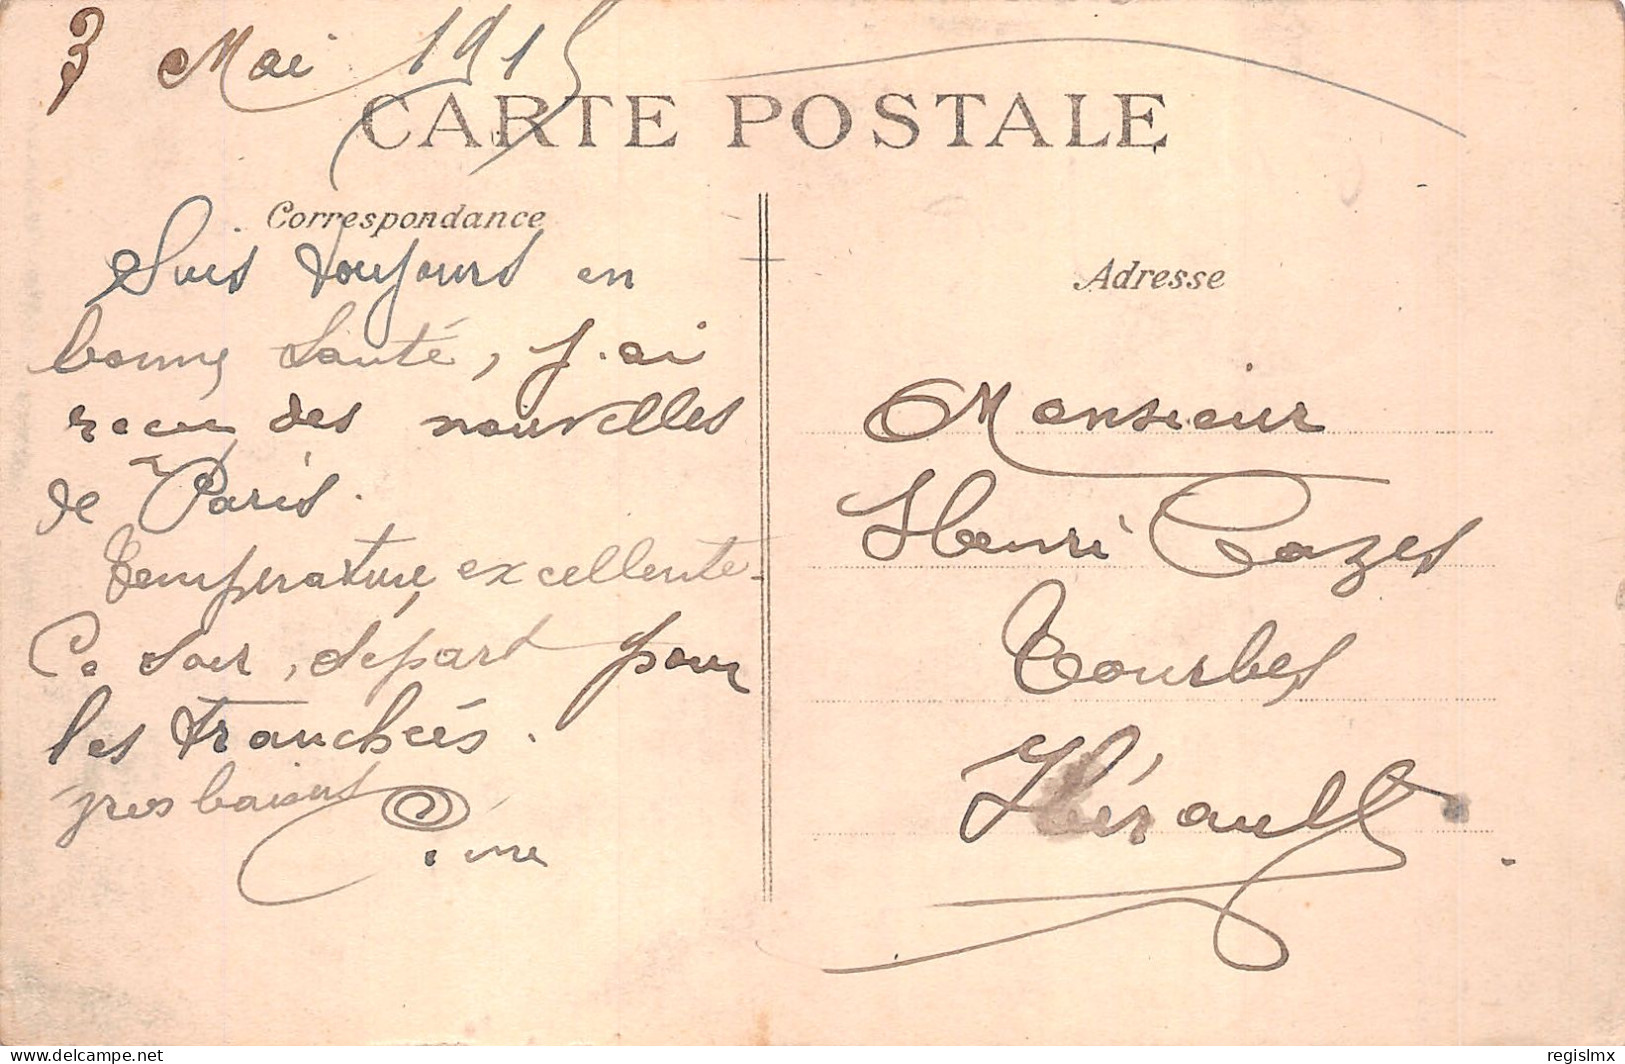 3 Mai 1915
CARTE POSTALE
Correspondance
Suis toujours en
bonne santé, j'ai
reçu des nouvelles
de Paris.
Température excellente.
Ce soir, départ pour
les tranchées.
gros baisers
Adresse
Monsieur
Henri Cazes
Tourbes
Hérault
delcampe.net
regislmx